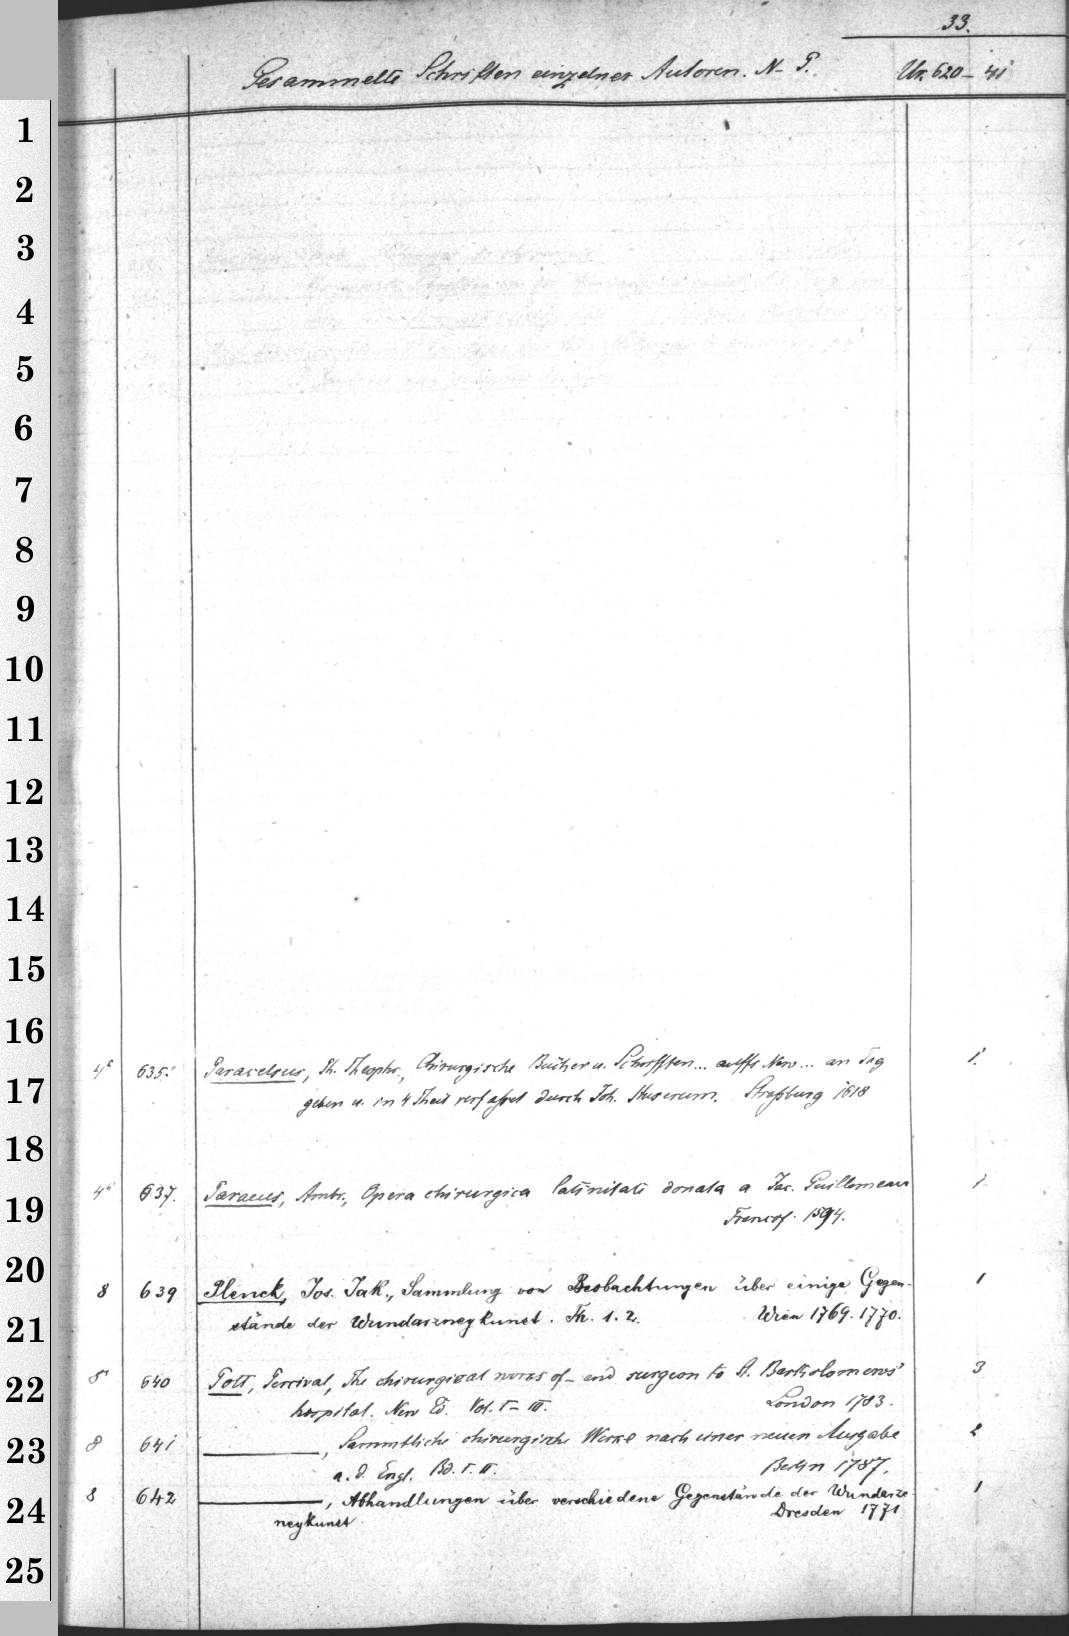 33.
Gesammelte Schriften einzelner Autoren. N-P. Nr. 620-41
1
2
3
4
5
6
7
8
9
10
11
12
13
14
15
16
4° 635. Paracelsus, Th. Theophr., Chirurgische Bücher u. Schrifften... auffs New... an Tag 1.
17
geben u. in 4 Theil verfasset durch Joh. Huserum. Straßburg 1618
18
4° 637. Paraeus, Ambr., Opera chirurgica latinitate donata a Jac. Guillemeau 1.
19
Francof. 1594.
20
8 639 Plenck, Jos. Jak., Sammlung von Beobachtungen über einige Gegen- 1
21
stände der Wundarzneykunst. Th. 1. 2. Wien 1769. 1770.
8° 640 Pott, Percival, The chirurgical works of – and surgeon to St. Bartholomews 3
22
hospital. New Ed. Vol. I-III. London 1783.
23
8 641 , Sammtliche chirurgische Werke nach einer neuen Ausgabe 2
a. d. Engl. Bd. I. II. Berlin 1787.
8 642 , Abhandlungen über verschiedene Gegenstände der Wundarze 1
24
neykunst Dresden 1771
25